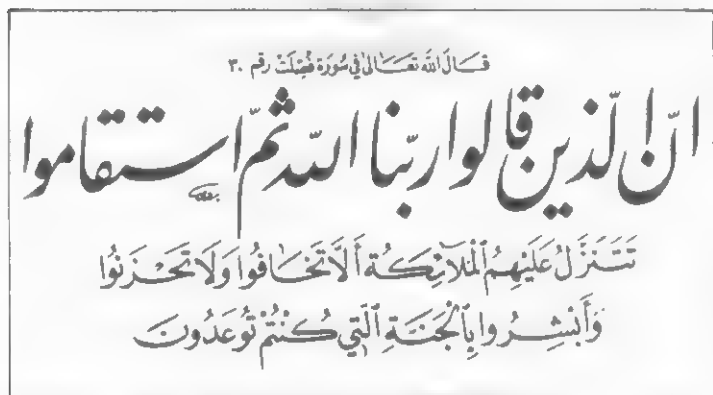 قَالَ اللهُ تَعَالَىٰ فِي سُورَة فُصِّلَتْ رقم ٣٠
انّ الّذين قالوا ربّنا اللّه ثمّ استقاموا
تَتَنَزَّلُ عَلَيْهِمُ ٱلْمَلَآئِكَةُ أَلَّا تَخَافُوا وَلَا تَحْزَنُوا
وَأَبْشِرُوا بِٱلْجَنَّةِ ٱلَّتِي كُنْتُمْ تُوعَدُونَ